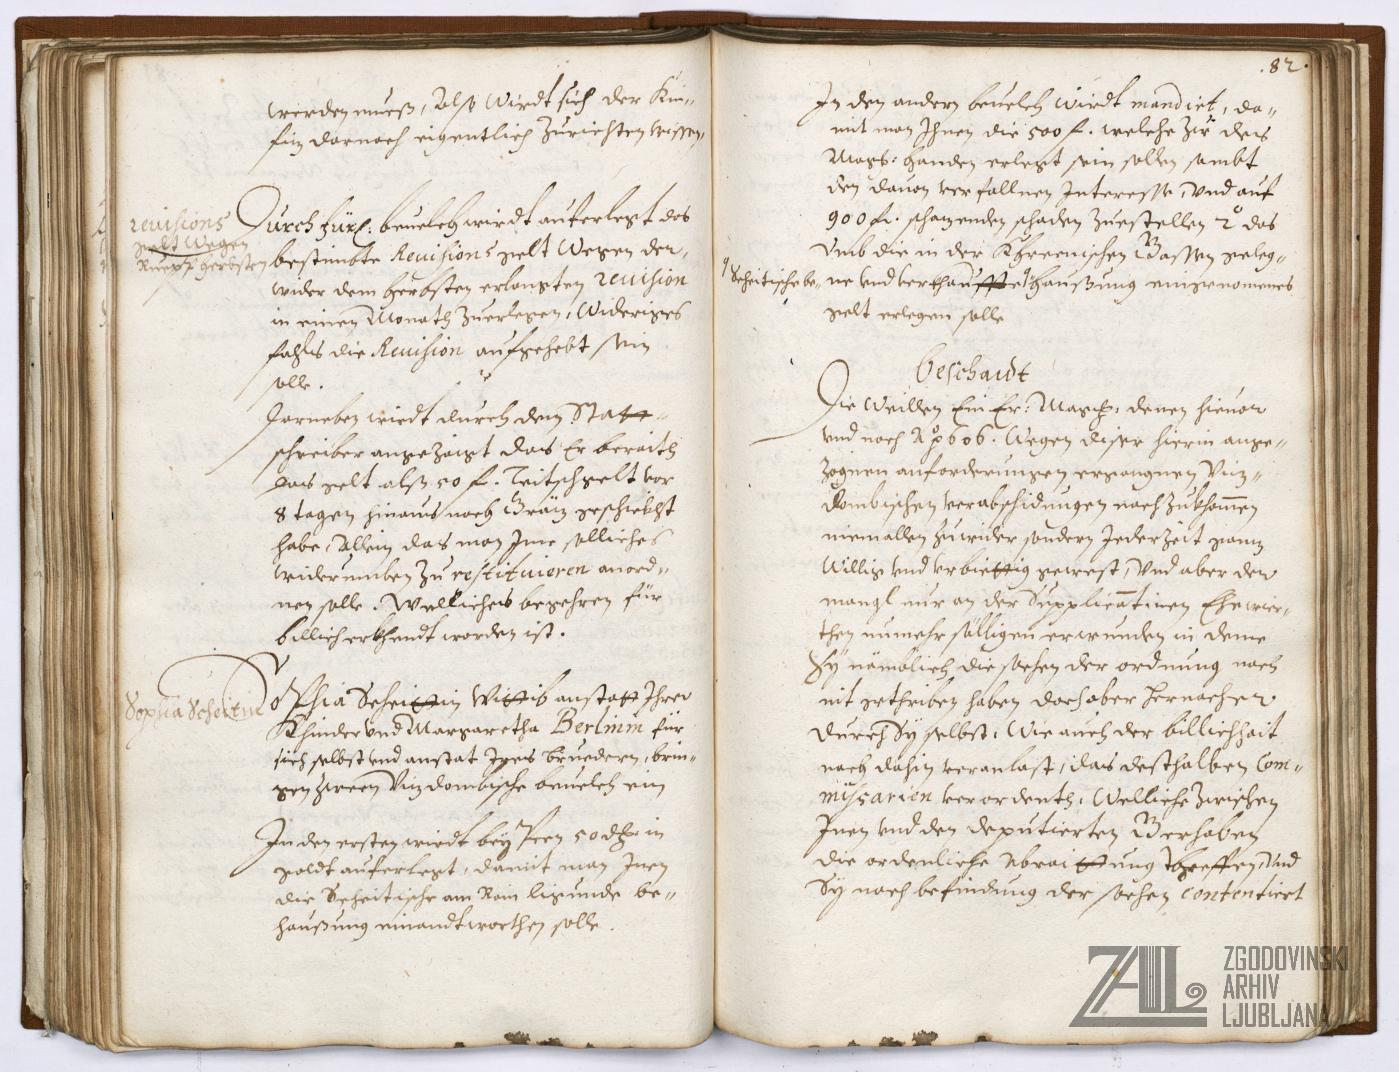 werden mueß, Alß wirdt sich der Kin-
fin darnach eigentlich zurichten wissen,
revisions
gelt wegen
Ruep: herbsten
Durch fürl: beuelch wirdt auferlegt das
bestimbte Revisions gelt wegen der,
wider dem herbsten erlangten revision
in einem Monath zuerlegen, widriges
fahls die Revision aufgehebt sein
solle.
Darneben wirdt durch dem Statt-
schreiber angezaigt das Er beraith
das gelt alß 50 f. Teitschgelt vor
8 tagen hinaus nach Gräz geschickht
habe, Allein das man Ime solliches
widerumben zu restituieren anord-
nen solle. Welliches begehren für
billich erkhendt worden ist.
Sophia Scheitin
Sophia Scheittin Wittib anstatt Ihrer
Khinder vnd Margaretha Berlinin für
sich selbst vnd anstat Ires bruedern, brin-
gen zween Vizdombische beuelch ein
In den ersten wirdt bey Pen 50 d in
goldt auferlegt, damit man Inen
die Scheitische am Rain ligunde be-
haußung einandtworthen solle.
.82.
In den andern beuelch wirdt mandirt, da-
mit man Ihnen die 500 f. welche zu des
Mags: handen erlegt sein sollen sambt
den dauon verfallnen Interesse, Vnd auf
900 f. schazenden schaden zuestellen 2o das
Vmb die in der Khreenischen Gassen geleg-
Scheitische be- ne vnd verkhauffte haußung eingenomenes
gelt erlegen solle
Beschaidt
Die weillen Ein Er: Magist: denen hieuor
vnd nach Ao 606. wegen diser hierin ange-
zognen anforderungen ergangnen Viz-
dombischen verabschidungen nach zukhomen
niemallen zuwider sondern Jederzeit ganz
willig vnd vrbiettig gewest, Vnd aber der
mangl nur an der Supplicantinen Ehewier-
then nunmehr sälligen erwunden in deme
Sy nämblich die sachen der ordnung nach
nit getriben haben doch aber hernacher
durch Sy selbst, wie auch der billichhait
nach dahin veranlast, das desthalben Com-
missarien verordenth, welliche zwischen
Inen vnd den deputierten Gerhaben
die ordenliche Abraittung threffen, Vnd
Sy nach befindung der sachen contentiert
ZAL
ZGODOVINSKI
ARHIV
LJUBLJANA